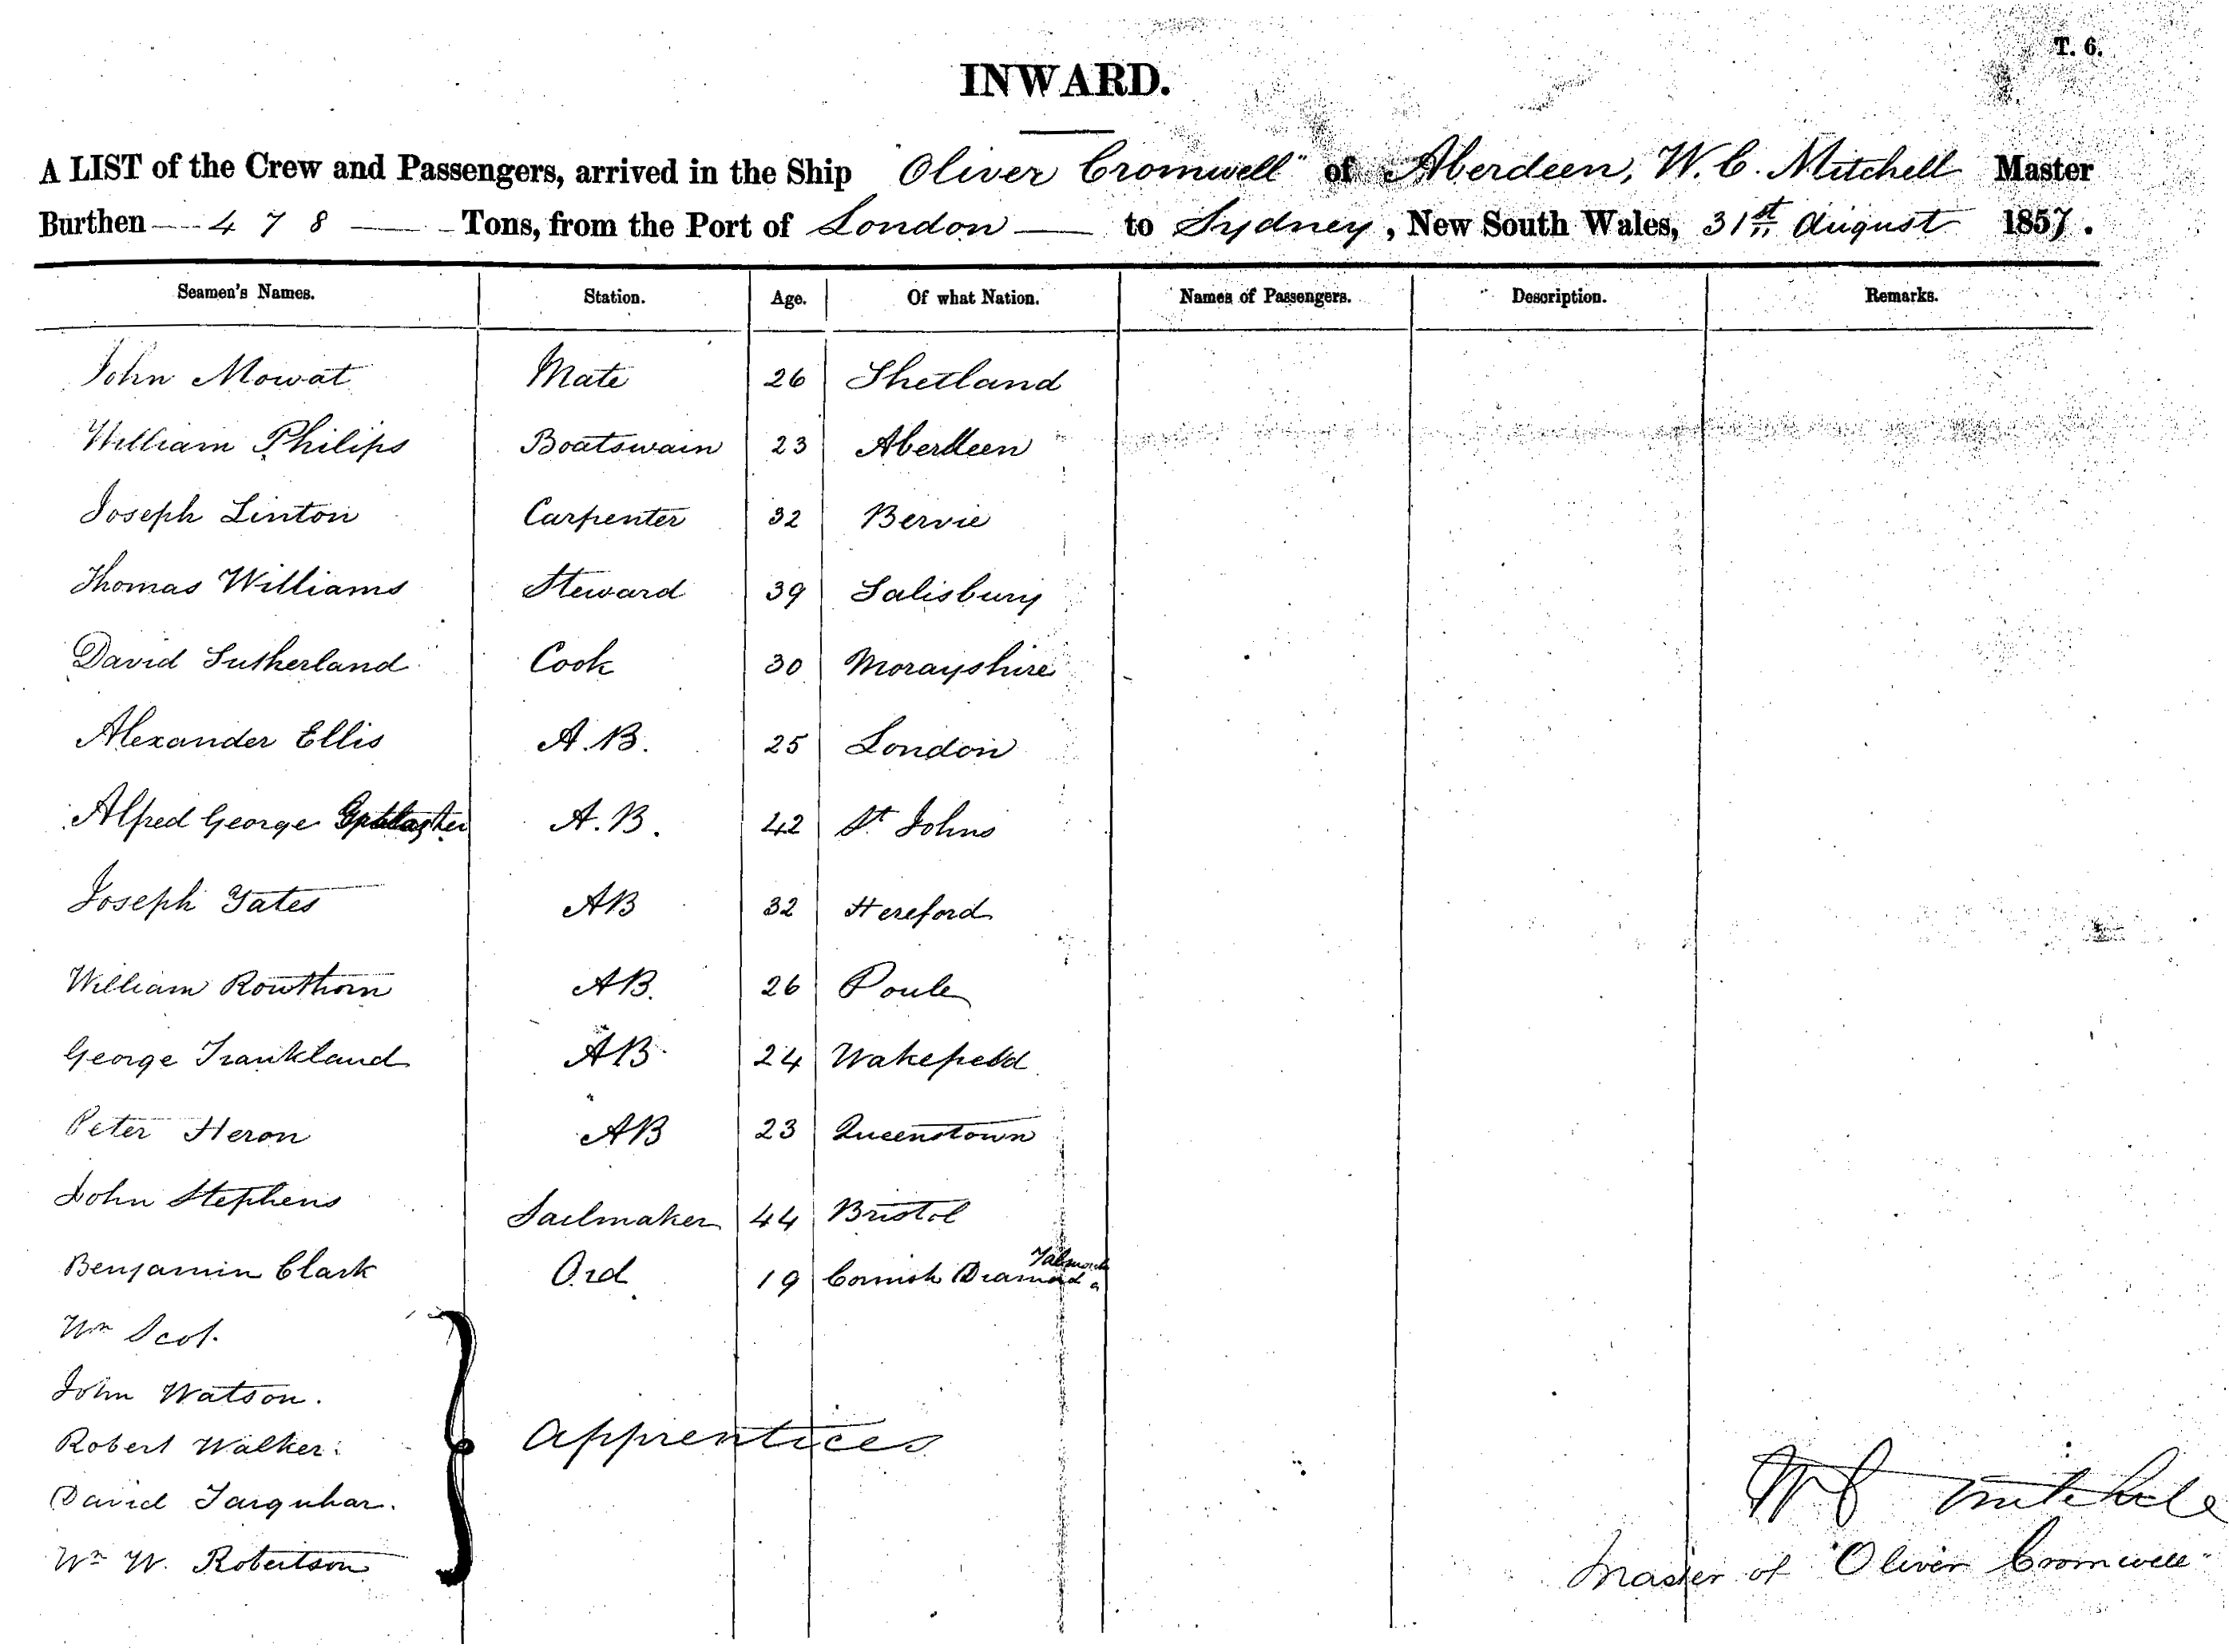 T. 6.
INWARD.
A LIST of the Crew and Passengers, arrived in the Ship "Oliver Cromwell" of Aberdeen, W. C. Mitchell Master
Burthen 478 Tons, from the Port of London to Sydney, New South Wales, 31st August 1857.
Seamen's Names. Station. Age. Of what Nation. Names of Passengers. Description. Remarks.
John Mowat Mate 26 Shetland
William Philips Boatswain 23 Aberdeen
Joseph Linton Carpenter 32 Bervie
Thomas Williams Steward 39 Salisbury
David Sutherland Cook 30 Morayshire
Alexander Ellis A.B. 25 London
Alfred George A.B. 42 St Johns
Joseph Yates AB 32 Hereford
William Rowthorn AB. 26 Poule
George Frankland AB 24 Wakefield
Peter Heron AB 23 Queenstown
John Stephens Sailmaker 44 Bristol
Benjamin Clark Ord. 19 Cornish
Wm Scot.
John Watson.
Robert Walker. Apprentices
David Farquhar.
Wm W. Robertson
W C Mitchell
Master of "Oliver Cromwell"